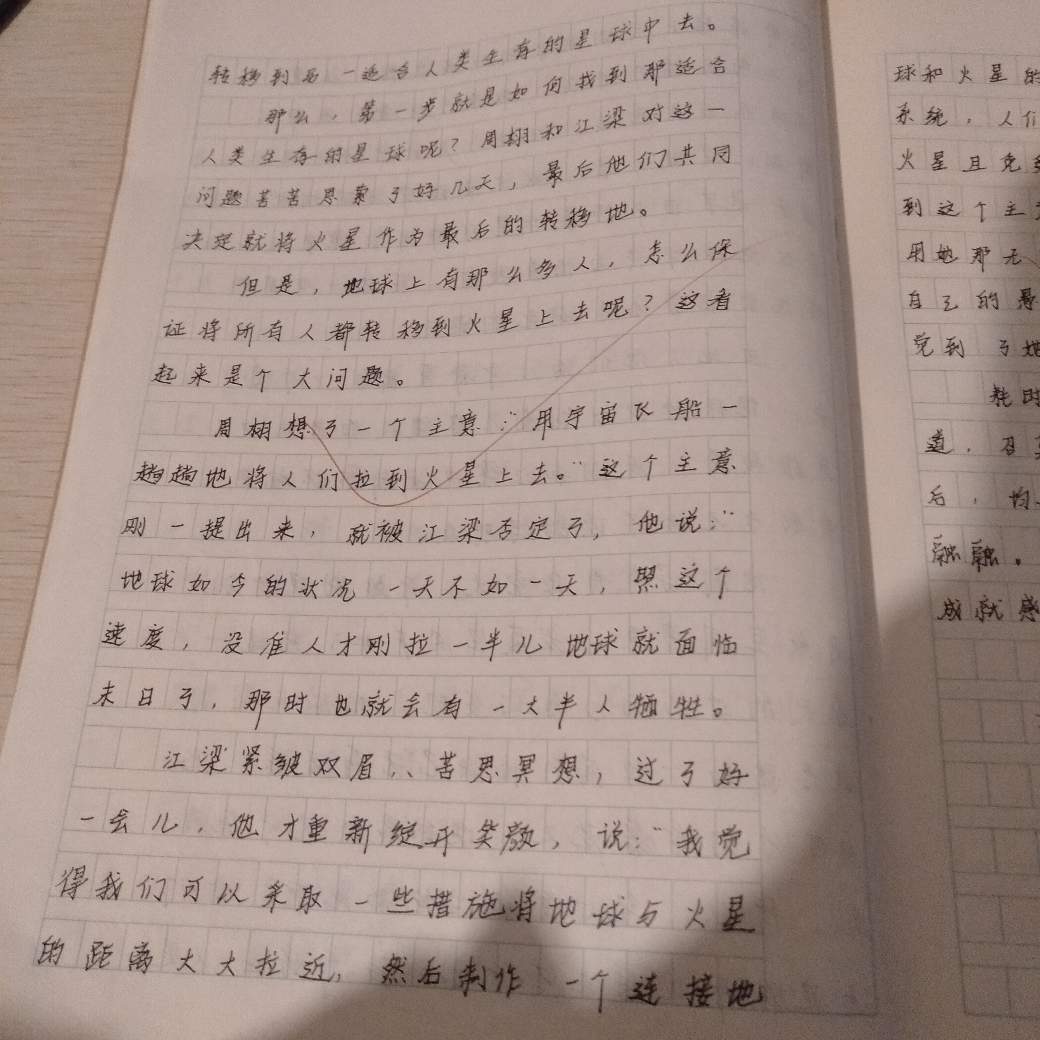 转移到另一适合人类生存的星球中去。
那么,第一步就是如何找到那适合
人类生存的星球呢?周栩和江梁对这一
问题苦苦思索了好几天,最后他们共同
决定就将火星作为最后的转移地。
但是,地球上有那么多人,怎么保
证将所有人都转移到火星上去呢?这看
起来是个大问题。
周栩想了一个主意:“用宇宙飞船一
趟趟地将人们拉到火星上去。”这个主意
刚一提出来,就被江梁否定了,他说:“
地球如今的状况一天不如一天,照这个
速度,没准人才刚拉一半儿地球就面临
末日了,那时也就会有一大半人牺牲。
江梁紧皱双眉、苦思冥想,过了好
一会儿,他才重新绽开笑颜,说:“我觉
得我们可以采取一些措施将地球与火星
的距离大大拉近,然后制作一个连接地
球和火星的
系统,人们
火星且免
到这个主
用她那无
自己的
觉到了她
耗时
道,
后,均
融融。
成就感